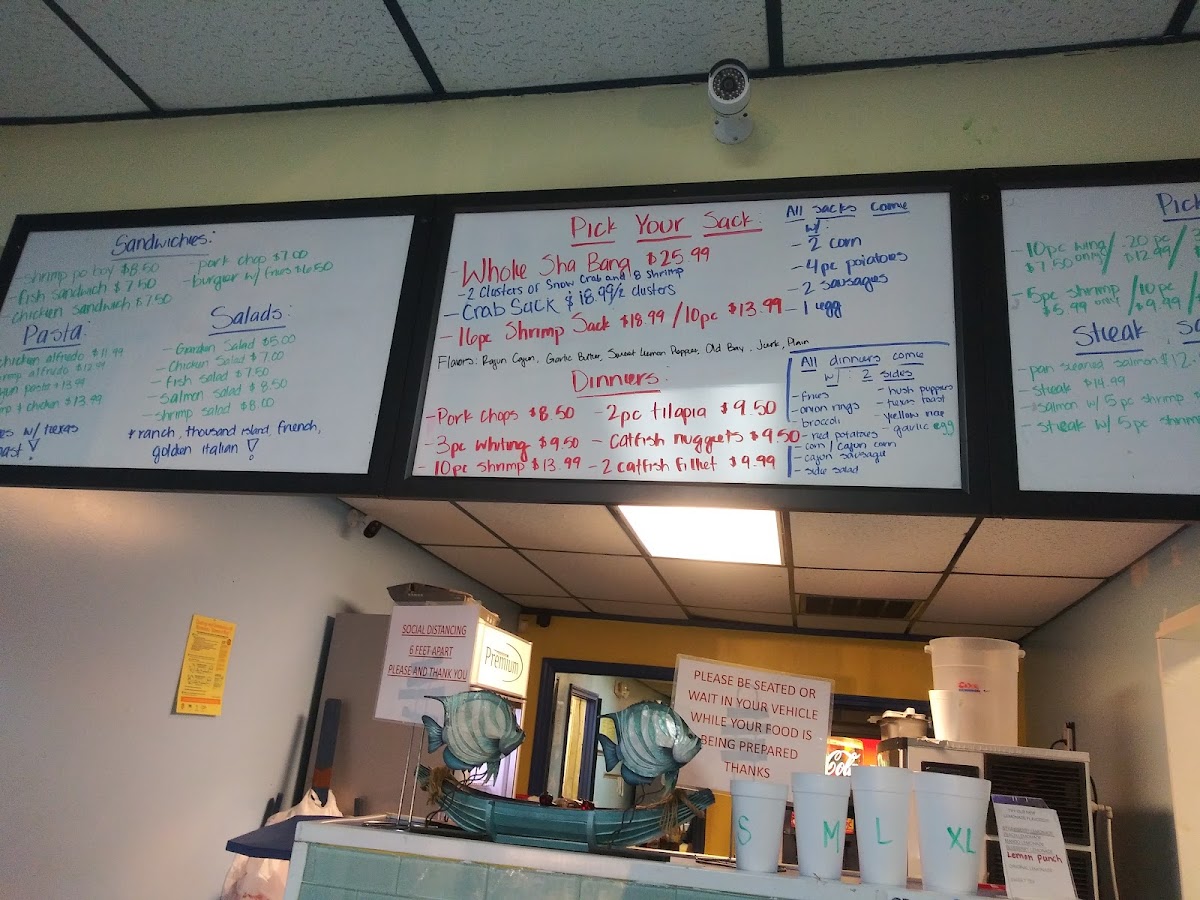 Sandwiches:
-shrimp po boy $8.50
-fish sandwich $7.50
chicken sandwich $7.50
-pork chop $7.00
-burger w/ fries $6.50
Pasta:
chicken alfredo $11.99
alfredo $12.99
pasta $13.99
& chicken $13.99
w/ texas
Salads:
- Garden Salad $5.00
- Chicken Salad $7.00
- fish salad $7.50
- Salmon salad $8.50
- shrimp salad $8.00
* ranch, thousand island, french,
golden italian!
Pick Your Sack:
-Whole Sha Bang $25.99
-2 Clusters of Snow Crab and 8 shrimp
-Crab Sack $18.99/2 clusters
-16pc Shrimp Sack $18.99/10pc $13.99
Flavors: Rajun Cajun, Garlic Butter, Sweet Lemon Pepper, Old Bay, Jerk, Plain
All sacks come
w/:
- 2 corn
- 4pc potatoes
- 2 sausages
- 1 egg
Dinners:
-Pork chops $8.50
-3pc whiting $9.50
-10pc shrimp $13.99
-2pc tilapia $9.50
-catfish nuggets $9.50
-2 catfish fillet $9.99
All dinners come
w/: 2 sides
-fries
-onion rings
-broccoli
-red potatoes
-corn / cajun corn
-cajun sausage
-side salad
-hush puppies
-texas toast
-yellow rice
-garlic egg
Pick
-10pc wing/ 20 pc/
$7.50 only/ $12.99/
-5pc shrimp/10pc
$5.99 only/ $9.99/
Steak
- pan seared salmon $12.
- steak $14.99
- salmon w/ 5 pc shrimp
- steak w/ 5pc shrimp
SOCIAL DISTANCING
6 FEET APART
PLEASE AND THANK YOU
Premium
PLEASE BE SEATED OR
WAIT IN YOUR VEHICLE
WHILE YOUR FOOD IS
BEING PREPARED
THANKS
S
M
L
XL
Lemon punch